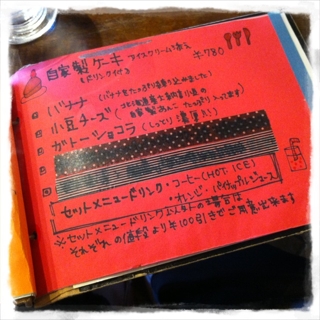 自家製ケーキ アイスクリーム添え ¥780
(ドリンク付)
バナナ (バナナをたっぷり
小豆チーズ(北海道
自家製あんこ たっぷり入ってます)
ガトーショコラ(しっとり濃厚!)
セットメニュードリンク・コーヒー(HOT ICE)
・オレンジ・パイナップルジュース
※セットメニュードリンク以外の場合は
それぞれの値段より¥100引きでご用意出来ます